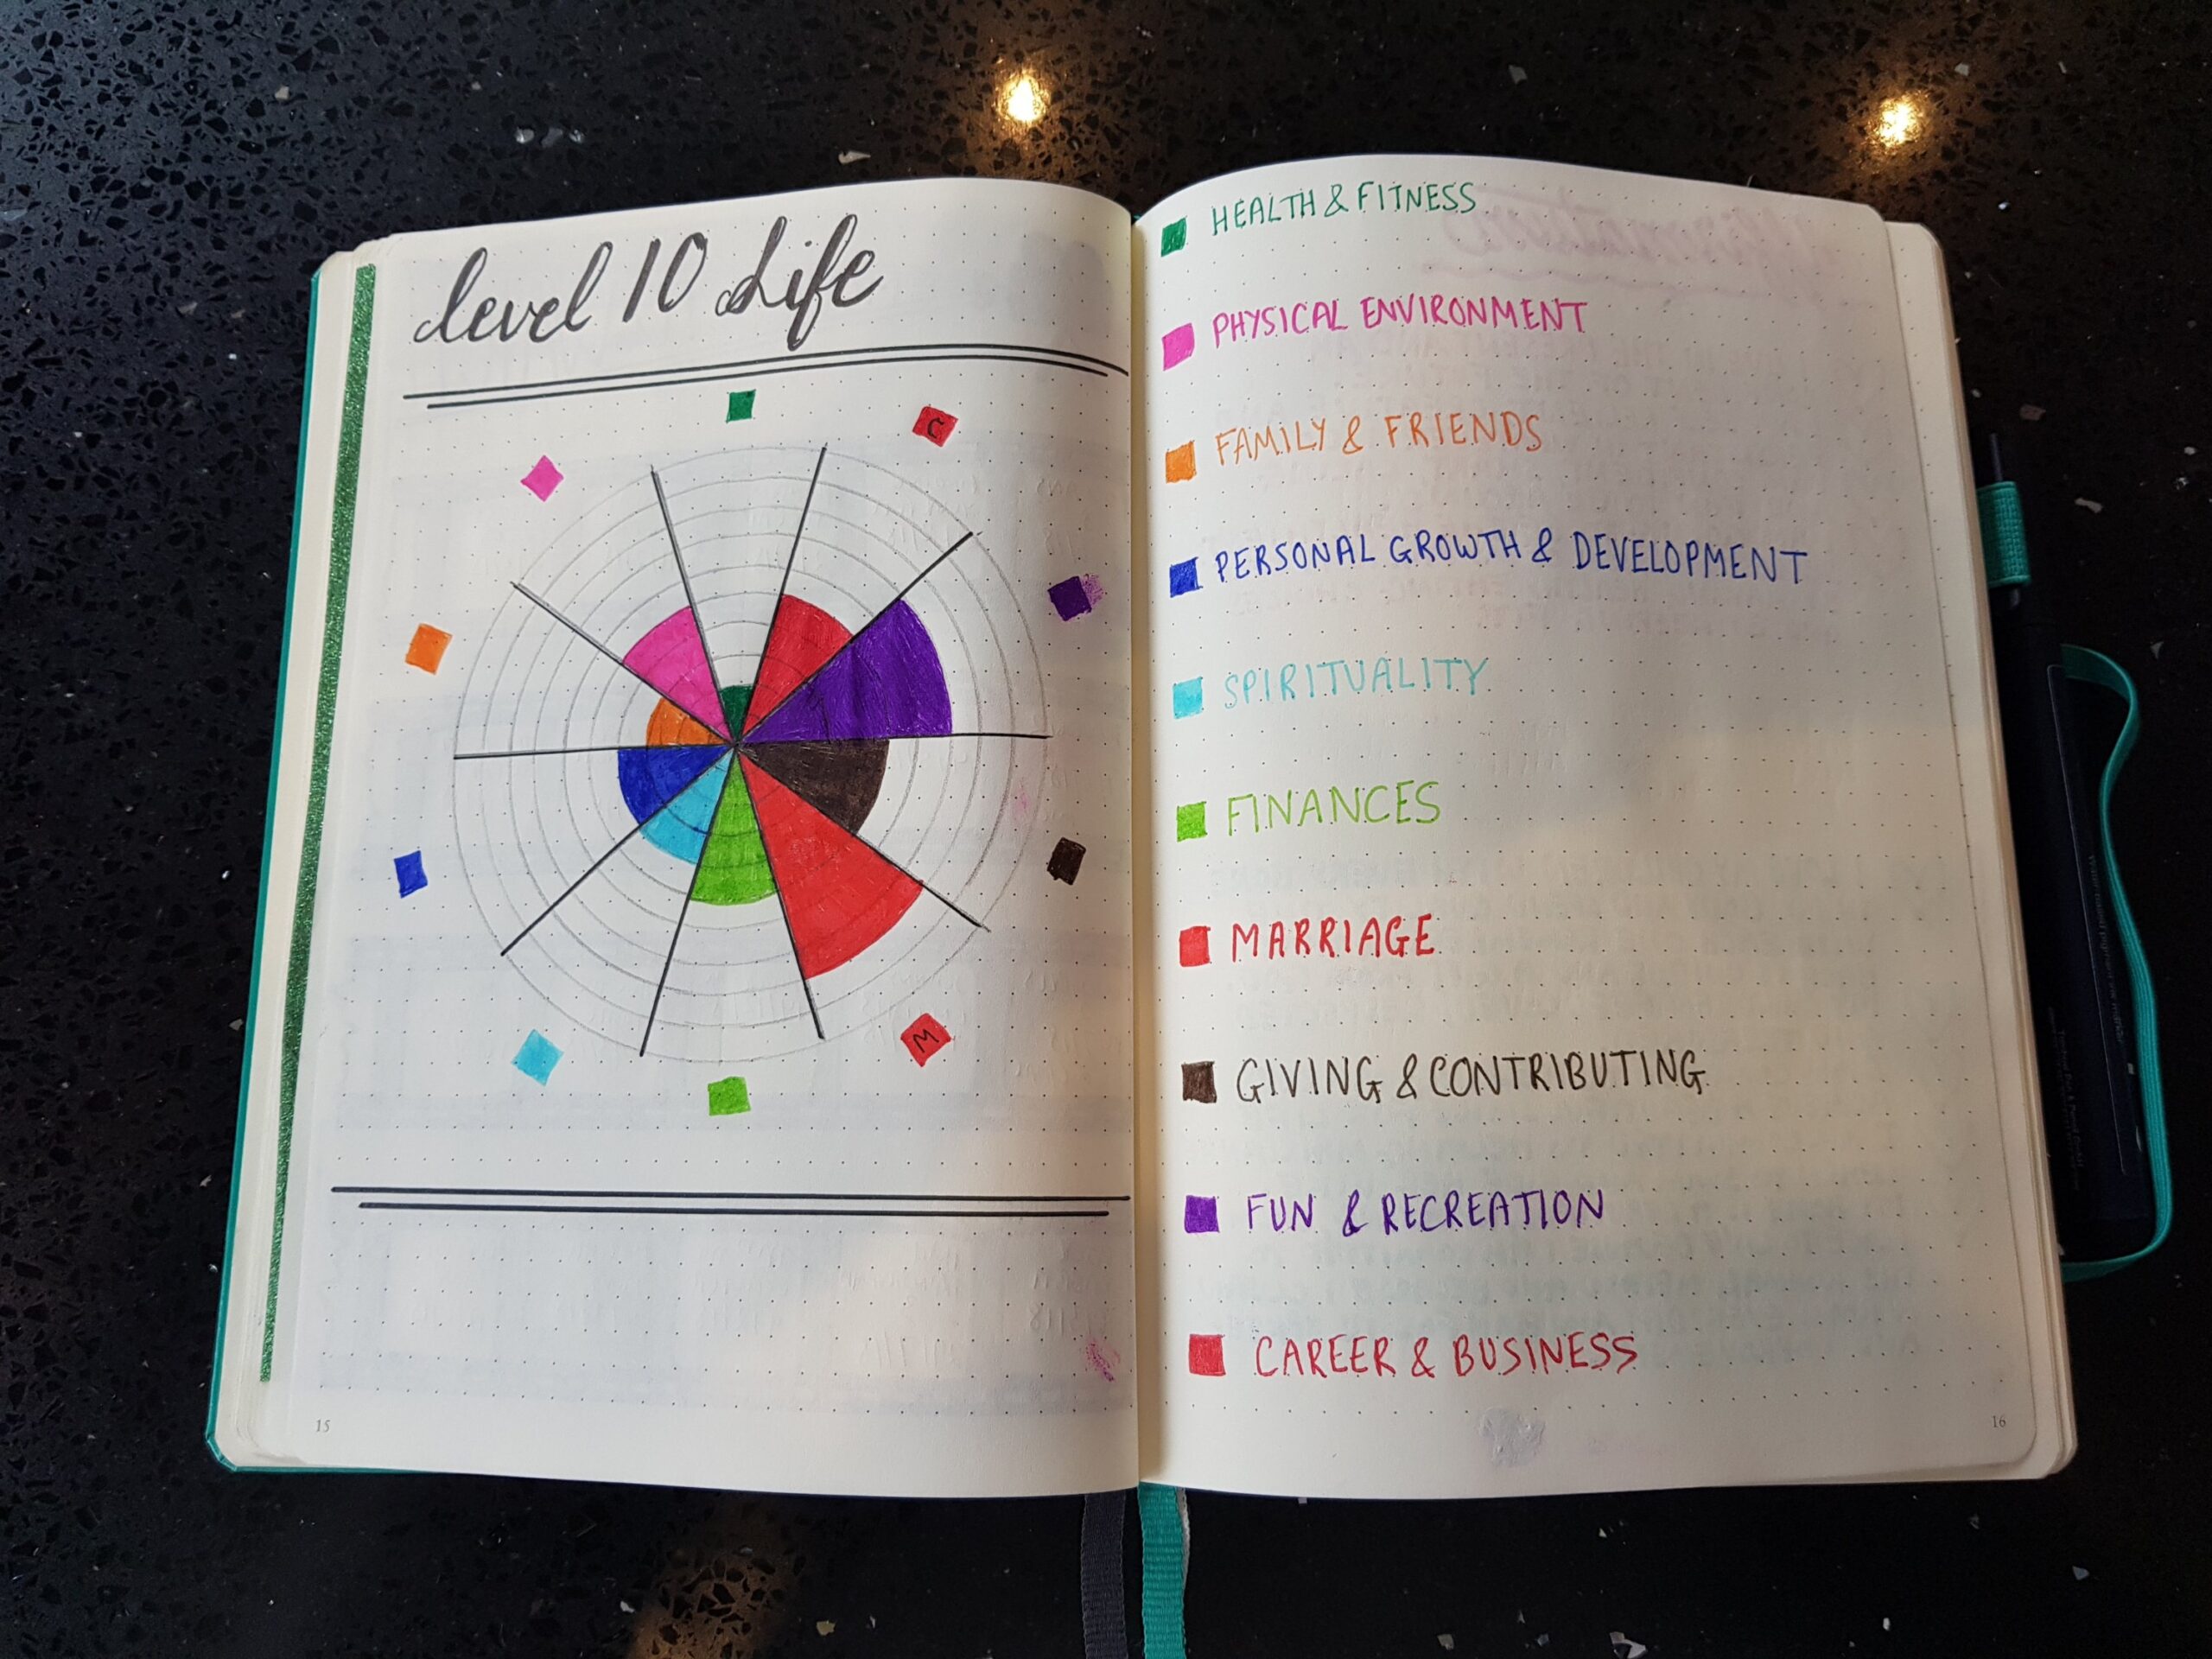 level 10 Life
C
M
15
HEALTH & FITNESS
PHYSICAL ENVIRONMENT
FAMILY & FRIENDS
PERSONAL GROWTH & DEVELOPMENT
SPIRITUALITY
FINANCES
MARRIAGE
GIVING & CONTRIBUTING
FUN & RECREATION
CAREER & BUSINESS
16